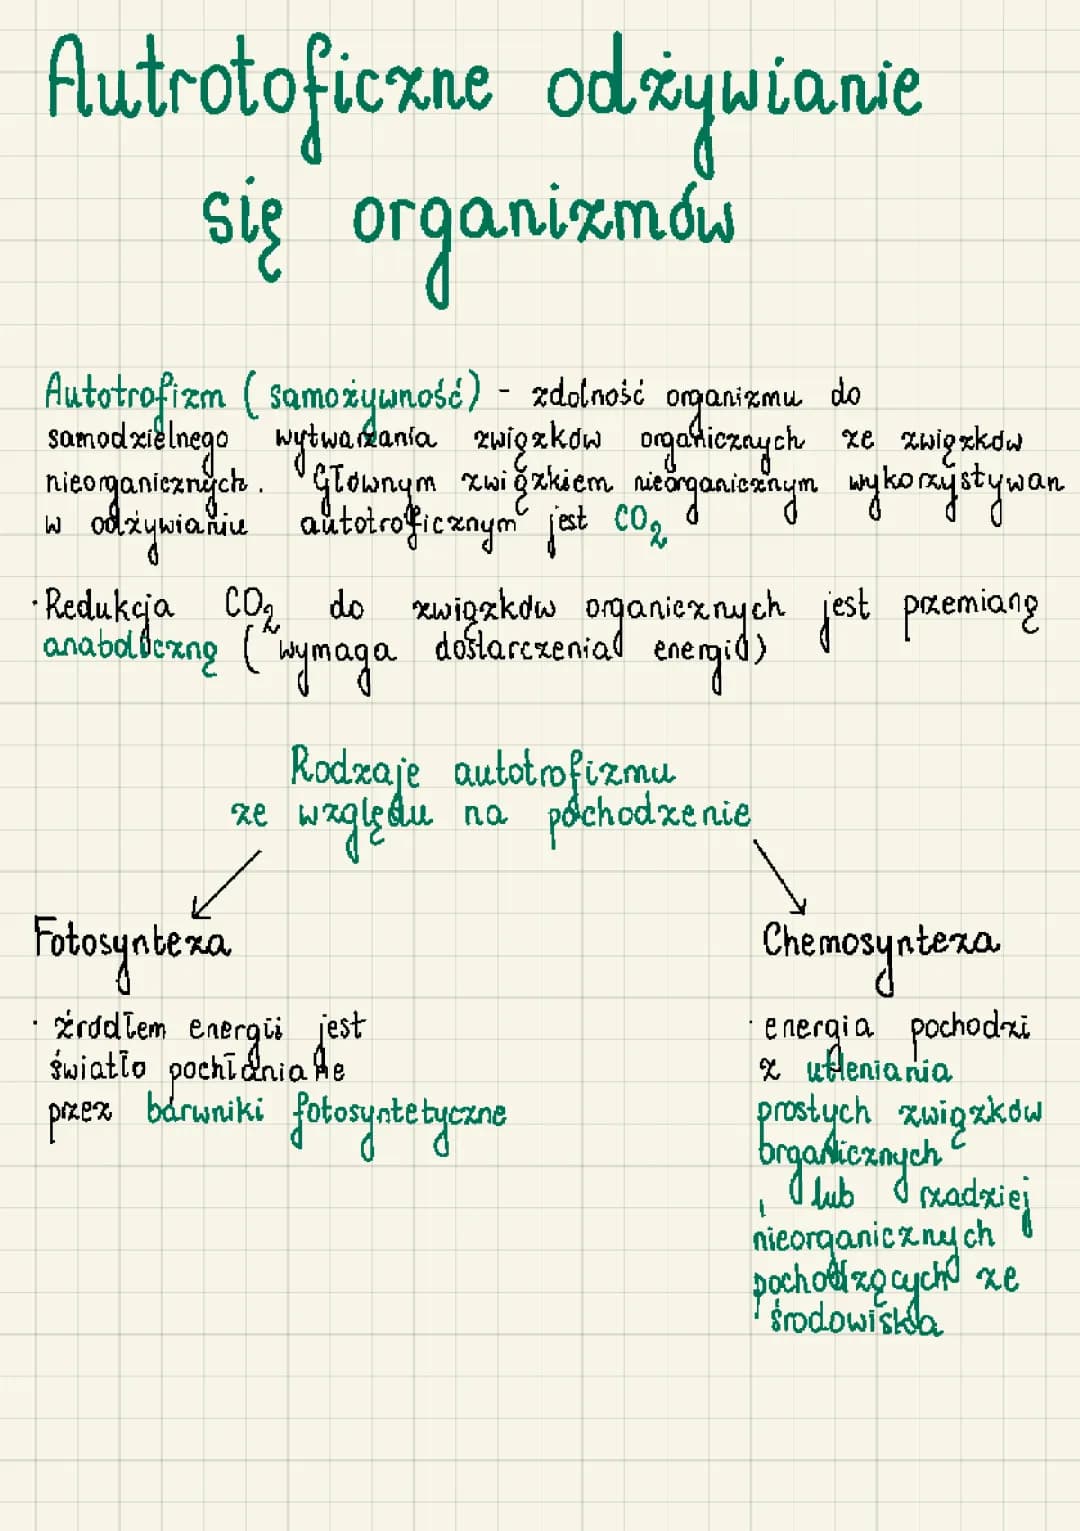 Autrotoficzne odżywianie
się organizmów
Autotrofizm (samożywność) - zdolność organizmu do
samodzielnego wytwarzania związków organicznych ze związków
nieorganicznych. Głównym związkiem nieorganicznym wykorzystywan
w odżywianiu autotroficznym jest CO₂
·Redukcja CO₂ do związków organicznych jest przemianą
anaboliczną (wymaga dostarczenia energii)
Rodzaje autotrofizmu
ze względu na pochodzenie
Fotosynteza
Chemosynteza
· źródłem energii jest
światło pochłaniane
przez barwniki fotosyntetyczne
· energia pochodzi
z utleniania
prostych związków
organicznych
, lub rzadziej
nieorganicznych
pochodzących ze
środowiska